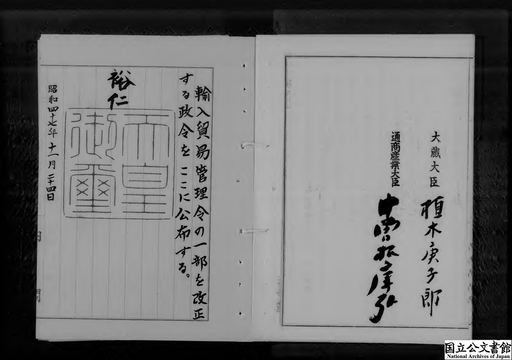 大蔵大臣
植木庚子郎
通商産業大臣
中曽根康弘
輸入貿易管理令の一部を改正
する政令をここに公布する。
裕仁
天皇
御璽
昭和四十七年十一月二十四日
国立公文書館
National Archives of Japan